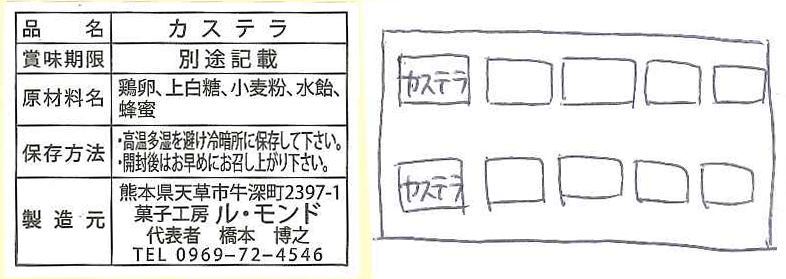 品名 カステラ
賞味期限 別途記載
原材料名 鶏卵、上白糖、小麦粉、水飴、
蜂蜜
保存方法 ・高温多湿を避け冷暗所に保存して下さい。
・開封後はお早めにお召し上がり下さい。
製造元 熊本県天草市牛深町2397-1
菓子工房 ル・モンド
代表者 橋本 博之
TEL 0969-72-4546
カステラ
カステラ